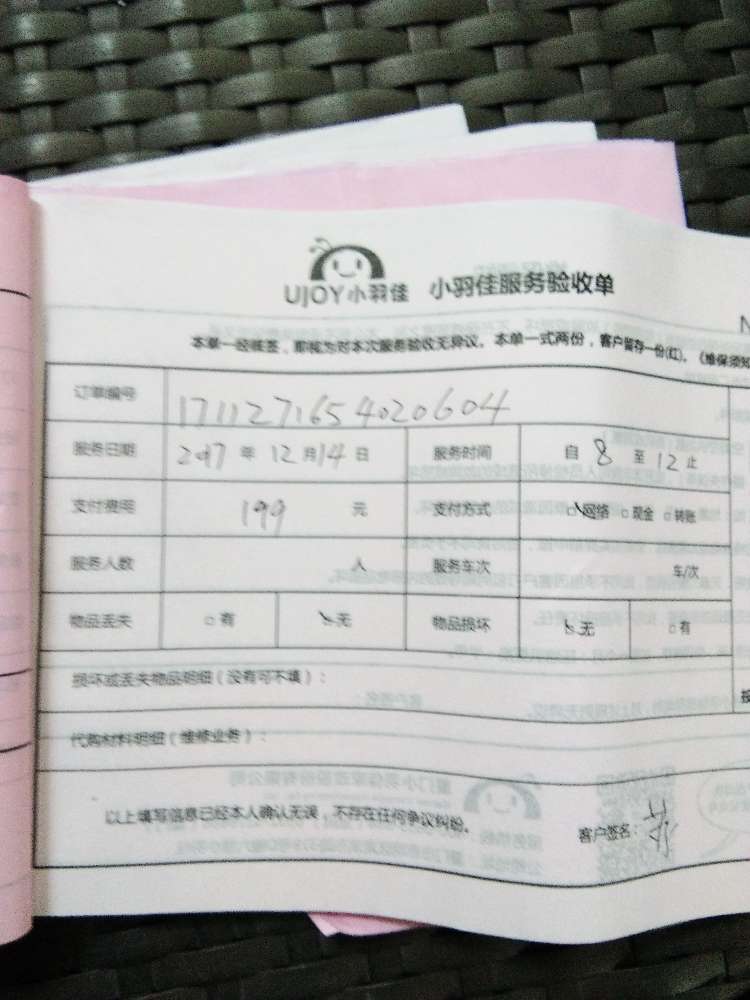 UJOY小羽佳 小羽佳服务验收单
N
本单一经核签，即视为对本次服务验收无异议。本单一式两份，客户留存一份(红)。(维保须知
订单编号 1711271654020604
服务日期 2017年12月14日 服务时间 自8至12止
支付费用 199 元 支付方式 □网络 □现金 □转账
服务人数 人 服务车次 车/次
物品丢失 □有 □无 物品损坏 □无 □有
损坏或丢失物品明细(没有可不填)：
代购材料明细(维修业务)：
以上填写信息已经本人确认无误，不存在任何争议纠纷。 客户签名：